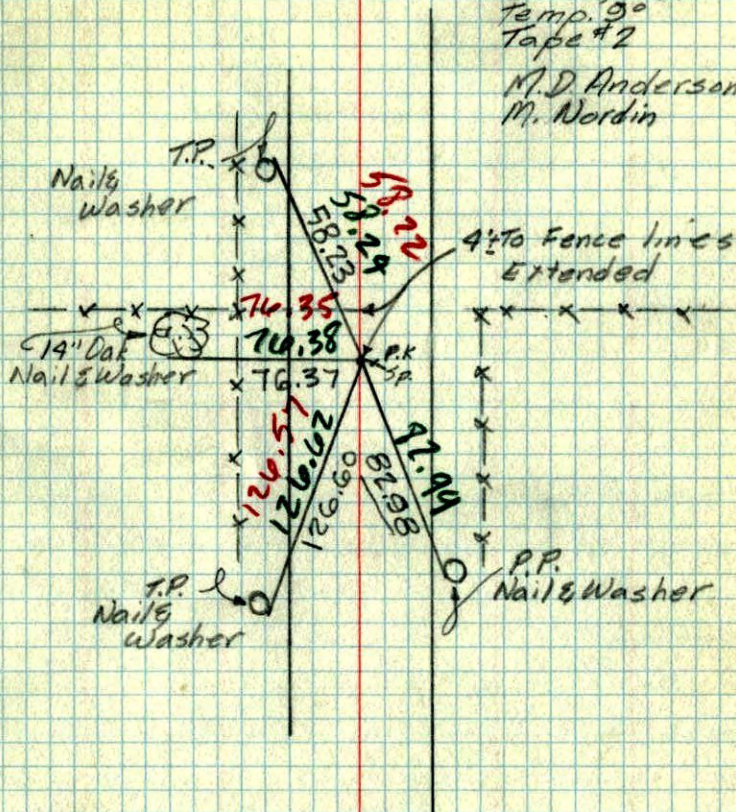 Temp. 9°
Tape #2
M.D. Anderson
M. Nordin
T.P.
Nail &
Washer
58.22
58.24
58.23
4'± To Fence lines
Extended
76.35
76.38
76.37
14" Oak
Nail & Washer
P.K
Sp.
126.57
126.62
126.60
82.99
82.98
T.P.
Nail &
Washer
P.P.
Nail & Washer